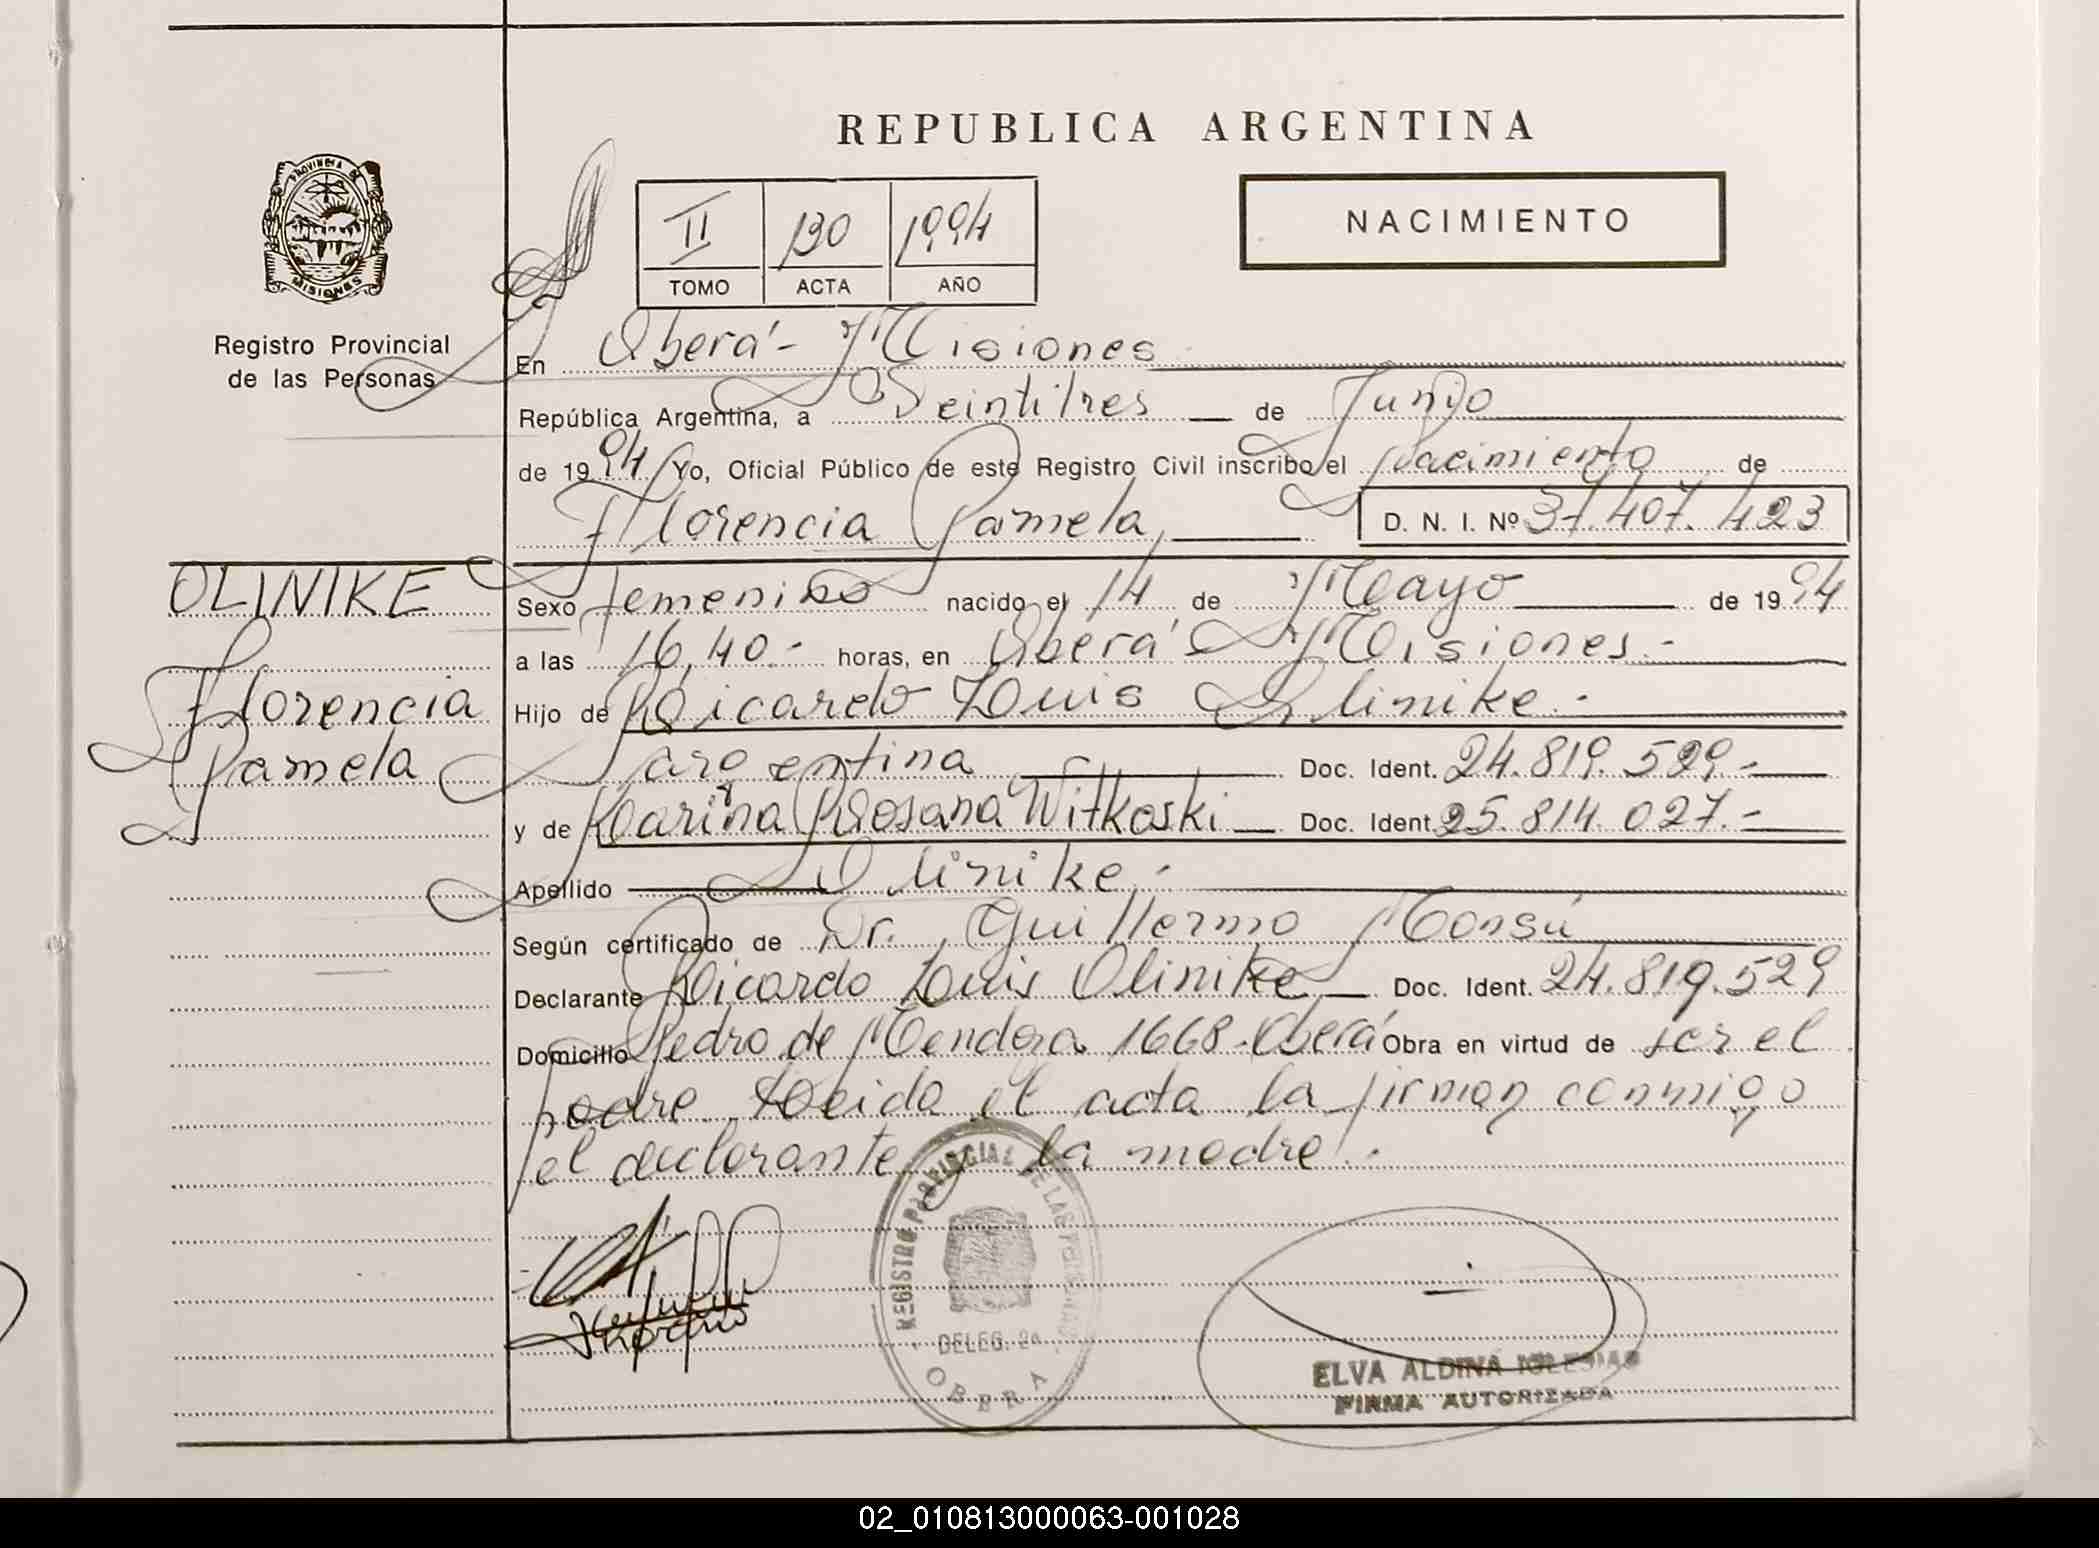 REPUBLICA ARGENTINA
PROVINCIA DE
MISIONES
Registro Provincial
de las Personas
II 130 1994
TOMO ACTA AÑO
NACIMIENTO
En Oberá - Misiones
República Argentina, a Veintitres de Junio
de 1994 Yo, Oficial Público de este Registro Civil inscribo el Nacimiento de
Florencia Pamela, D. N. I. Nº 37.407.423
OLINIKE
Florencia
Pamela
Sexo femenino nacido el 14 de Mayo de 1994
a las 16,40.- horas, en Oberá Misiones.-
Hijo de Ricardo Luis Olinike.-
argentina Doc. Ident. 24.819.529.-
y de Karina Rosana Witkoski Doc. Ident. 25.814.027.-
Apellido Olinike.-
Según certificado de Dr. Guillermo Monsú
Declarante Ricardo Luis Olinike Doc. Ident. 24.819.529
Domicilio Pedro de Mendoza 1668-Oberá Obra en virtud de ser el
padre Leida el acta la firman conmigo
el declarante y la madre.-
REGISTRO PROVINCIAL DE LAS PERSONAS
DELEG. 2a.
OBERA
ELVA ALDINA IGLESIAS
FIRMA AUTORIZADA
02_010813000063-001028